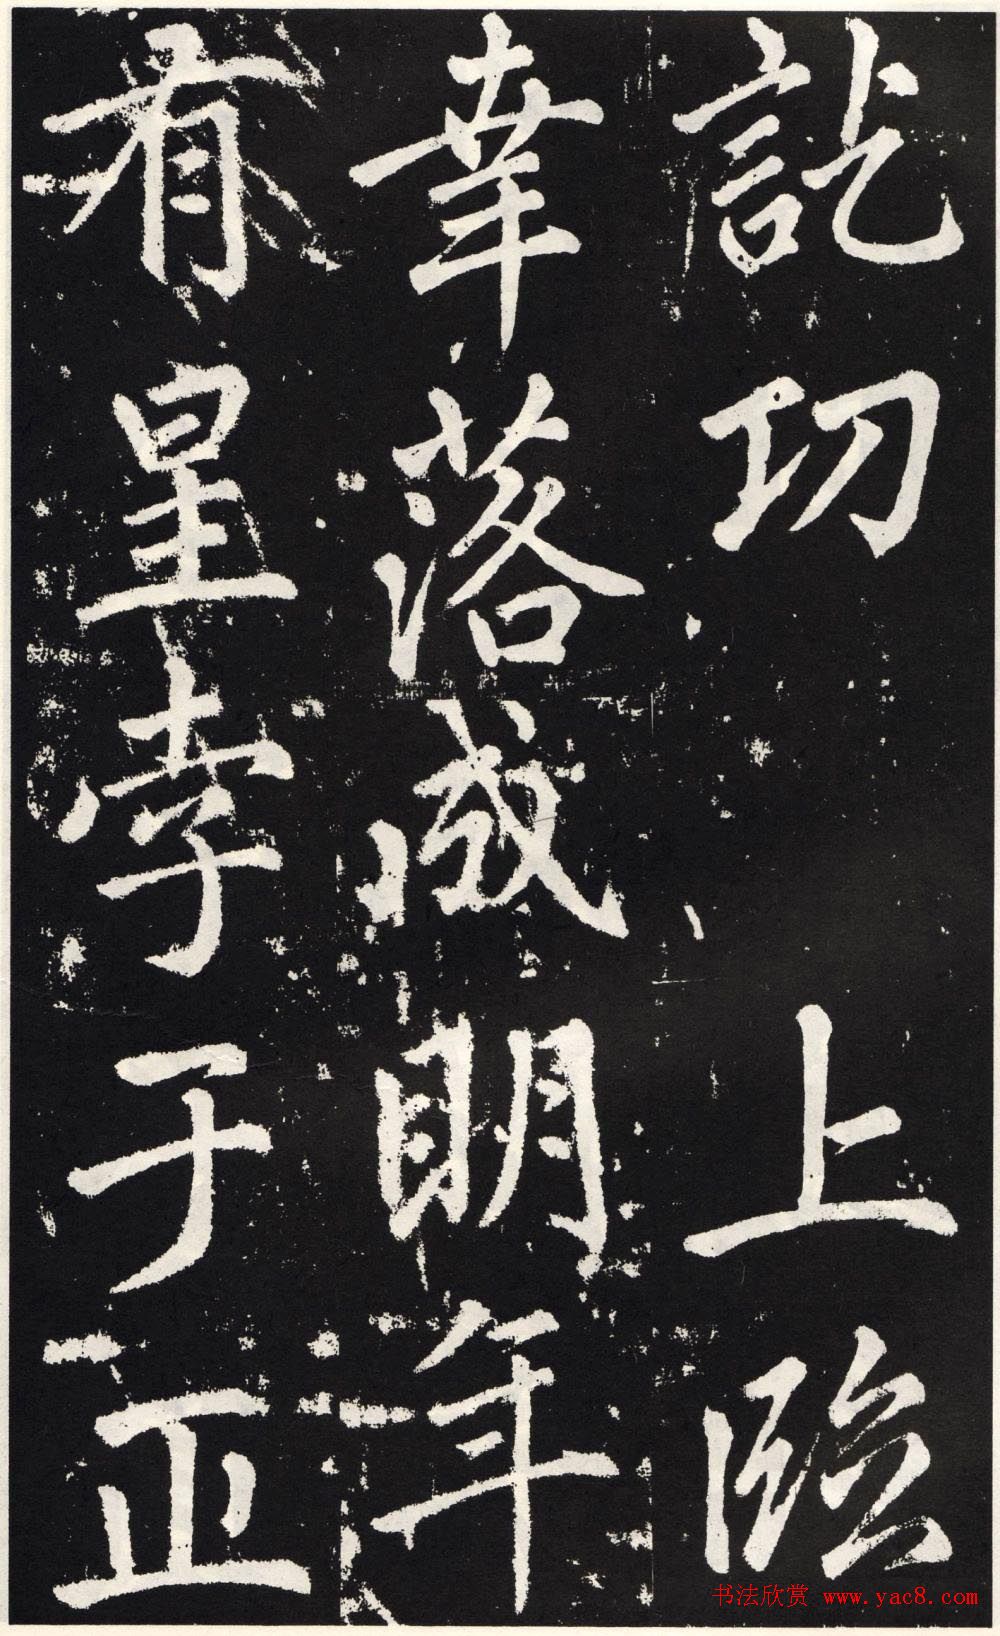 訖功　上臨
幸落成明年
有星孛于正
书法欣赏 www.yac8.com